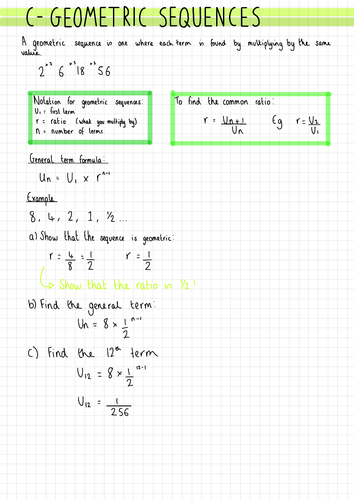 C - GEOMETRIC SEQUENCES
A geometric sequence is one where each term is found by multiplying by the same
value.
2 ×3 6 ×3 18 ×3 56
Notation for geometric sequences:
U₁ = first term
r = ratio (what you multiply by)
n = number of terms
To find the common ratio:
r = Un+1 / Un Eg r = U₂ / U₁
General term formula:
Un = U₁ × r^n-1
Example
8, 4, 2, 1, ½ ...
a) Show that the sequence is geometric:
r = 4/8 = 1/2 r = 1/2
↳ Show that the ratio is ½!
b) Find the general term:
Un = 8 × 1/2^n-1
c) Find the 12th term
U₁₂ = 8 × 1/2^12-1
U₁₂ = 1/256